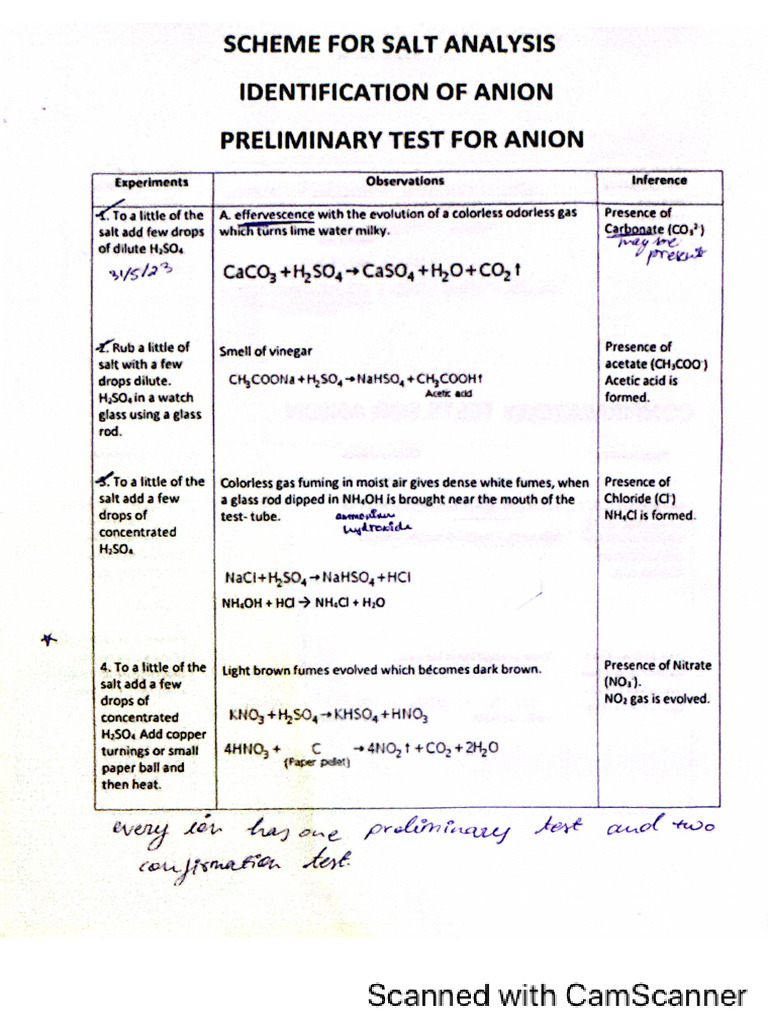 SCHEME FOR SALT ANALYSIS
IDENTIFICATION OF ANION
PRELIMINARY TEST FOR ANION
Experiments
Observations
Inference
1. To a little of the
salt add few drops
of dilute H₂SO₄
31/5/23
A. effervescence with the evolution of a colorless odorless gas
which turns lime water milky.
CaCO₃+H₂SO₄→CaSO₄+H₂O+CO₂↑
Presence of
Carbonate (CO₃²⁻)
may be
present
2. Rub a little of
salt with a few
drops dilute.
H₂SO₄ in a watch
glass using a glass
rod.
Smell of vinegar
CH₃COONa+H₂SO₄→NaHSO₄+CH₃COOH↑
Acetic acid
Presence of
acetate (CH₃COO⁻)
Acetic acid is
formed.
3. To a little of the
salt add a few
drops of
concentrated
H₂SO₄
Colorless gas fuming in moist air gives dense white fumes, when
a glass rod dipped in NH₄OH is brought near the mouth of the
test- tube.
ammonium
hydroxide
NaCl+H₂SO₄→NaHSO₄+HCl
NH₄OH + HCl → NH₄Cl + H₂O
Presence of
Chloride (Cl⁻)
NH₄Cl is formed.
4. To a little of the
salt add a few
drops of
concentrated
H₂SO₄ Add copper
turnings or small
paper ball and
then heat.
Light brown fumes evolved which becomes dark brown.
KNO₃+H₂SO₄→KHSO₄+HNO₃
4HNO₃+ C →4NO₂↑+CO₂+2H₂O
(Paper pellet)
Presence of Nitrate
(NO₃⁻).
NO₂ gas is evolved.
every ion has one preliminary test and two
confirmation test.
Scanned with CamScanner